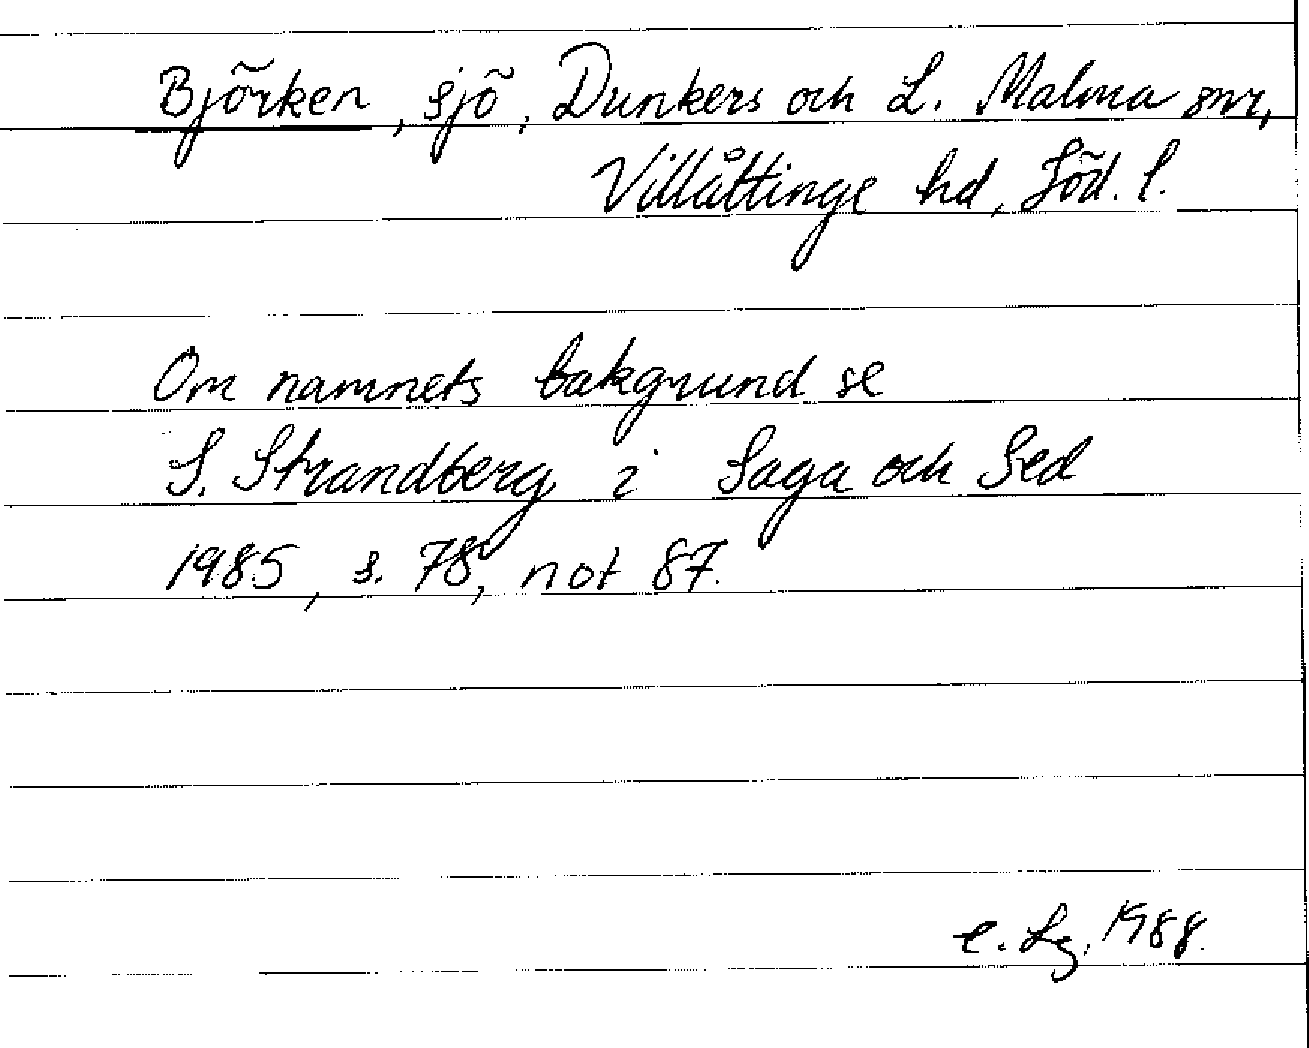 Björken, sjö, Dunkers och L. Malma snr,
Villåttinge hd, Söd. l.
Om namnets bakgrund se
S. Strandberg i Saga och Sed
1985, s. 78, not 87.
e. Lg. 1988.